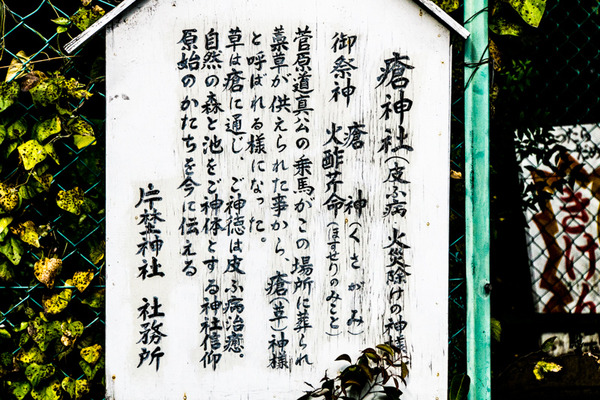 瘡神社(皮ふ病 火災除けの神様
御祭神 瘡神(くさがみ)
火酢芹命(ほすせりのみこと)
菅原道真公の乗馬がこの場所に葬られ
藁草が供えられた事から、瘡(草)神様
と呼ばれる様になった。
草は瘡に通じ、ご神徳は皮ふ病治癒。
自然の森と池をご神体とする神社信仰
原始のかたちを今に伝える
片埜神社 社務所